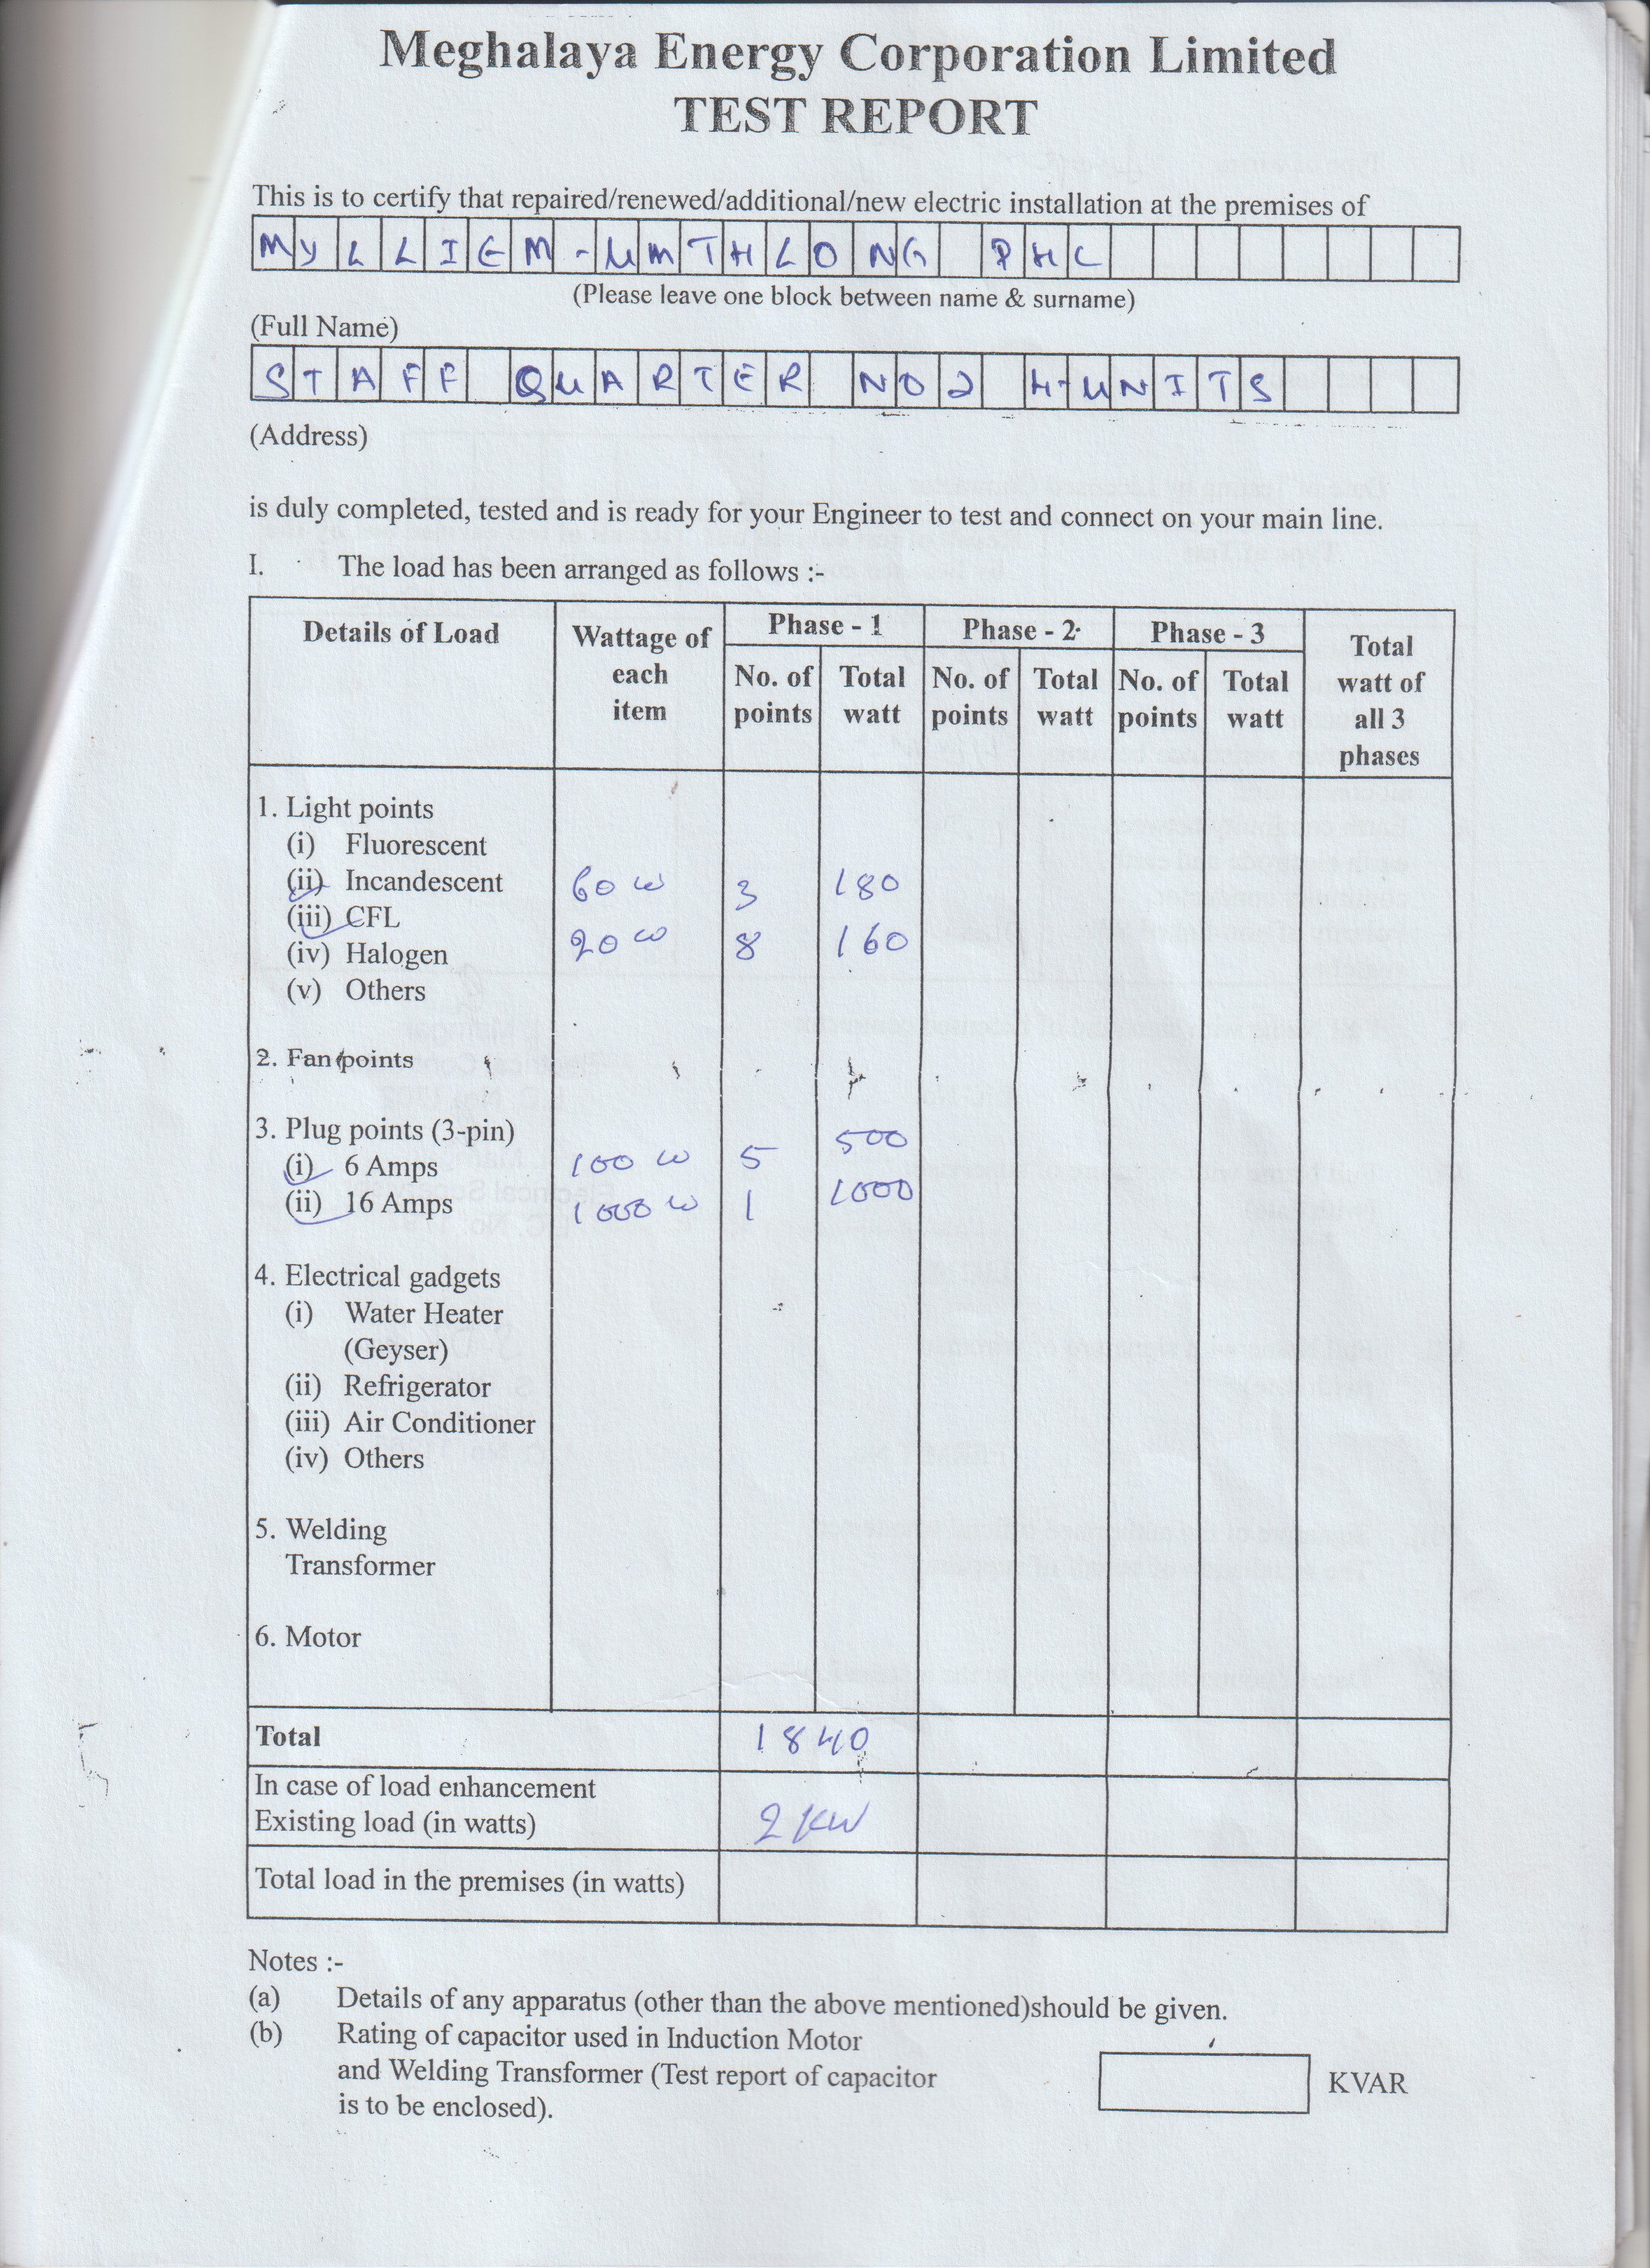 Meghalaya Energy Corporation Limited
TEST REPORT
This is to certify that repaired/renewed/additional/new electric installation at the premises of
MYLLIEM-UMTHLONG PHC
(Please leave one block between name & surname)
(Full Name)
STAFF QUARTER NO2 4-UNITS
(Address)
is duly completed, tested and is ready for your Engineer to test and connect on your main line.
I. The load has been arranged as follows :-
Details of Load Wattage of each item Phase - 1 Phase - 2 Phase - 3 Total watt of all 3 phases
No. of points Total watt No. of points Total watt No. of points Total watt
1. Light points
(i) Fluorescent
(ii) Incandescent 60 W 3 180
(iii) CFL
(iv) Halogen 20 W 8 160
(v) Others
2. Fan points
3. Plug points (3-pin)
(i) 6 Amps 100 W 5 500
(ii) 16 Amps 1000 W 1 1000
4. Electrical gadgets
(i) Water Heater
(Geyser)
(ii) Refrigerator
(iii) Air Conditioner
(iv) Others
5. Welding
Transformer
6. Motor
Total 1840
In case of load enhancement
Existing load (in watts) 2 KW
Total load in the premises (in watts)
Notes :-
(a) Details of any apparatus (other than the above mentioned)should be given.
(b) Rating of capacitor used in Induction Motor
and Welding Transformer (Test report of capacitor KVAR
is to be enclosed).